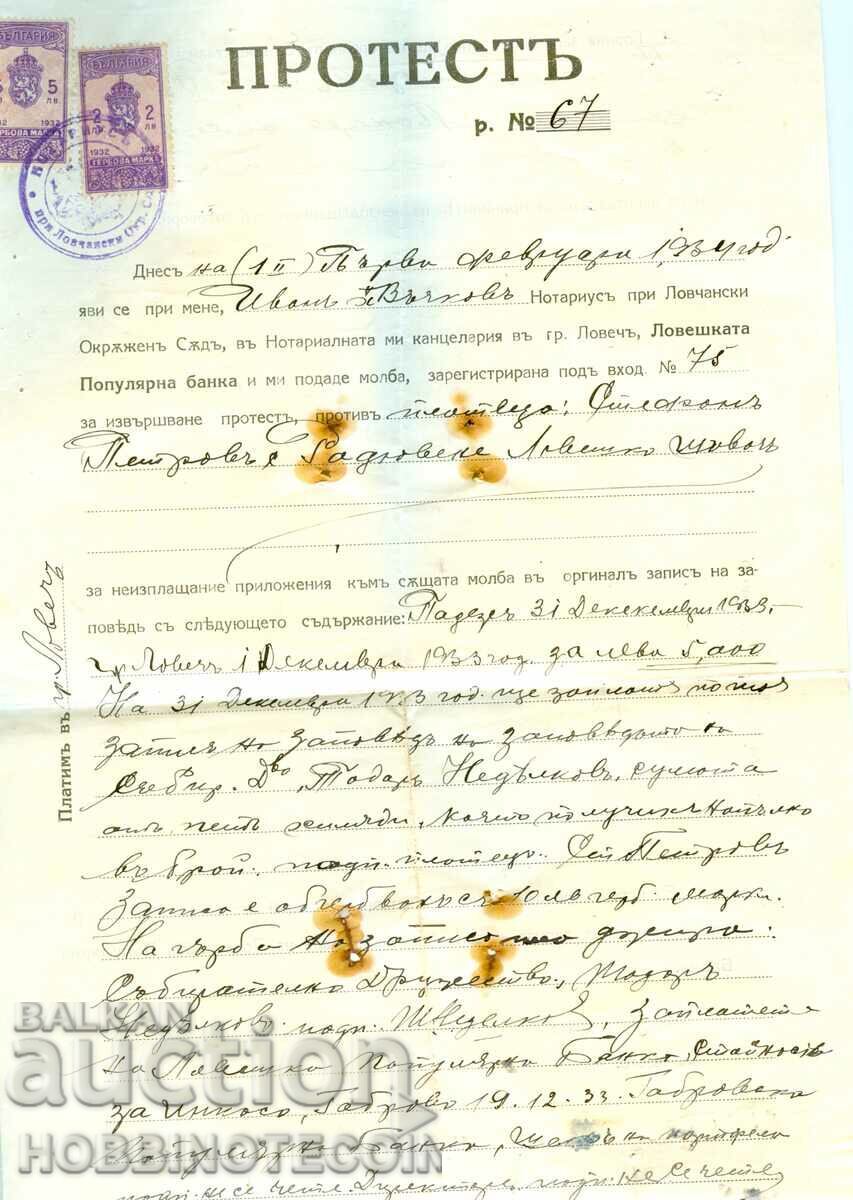 БЪЛГАРИЯ
5 5
ЛВ
1932
ГЕРБОВА МАРКА
БЪЛГАРИЯ
2 2
ЛВ
1932 1932
ГЕРБОВА МАРКА
при Ловчански Окр.
ПРОТЕСТЪ
р. № 67
Днесъ на (1 II) Първи февруари 1934 год
яви се при мене, Иванъ Вълковъ Нотариусъ при Ловчански
Окрѫженъ Сѫдъ, въ Нотариалната ми канцелария въ гр. Ловечъ, Ловешката
Популярна банка и ми подаде молба, зарегистрирана подъ вход. № 75
за извършване протестъ, противъ платеца: Стефанъ
Петровъ с Радювене Ловешко
за неизплащание приложения къмъ сѫщата молба въ оргиналъ записъ на за-
поведь съ следующето съдържание: Падежъ 31 Декекември 1933
гр Ловечъ 1 Декемврий 1933 год. за лева 5,000
На 31 Декемврий 1933 год. ще заплатя по тоя
записъ на заповедь на заповедьта на
Събир. Дво Тодоръ Недѣлковъ, сумата
отъ петь хиляди, които получихъ напълно
въ брой. подп. платецъ. Ст Петровъ
Записа е обгербванъ съ 10 лв герб. марки.
На гърба на записа
Събирателно Дружество, Тодоръ
Недѣлковъ подп. заплатете
на Ловешка популярна Банка, Стойность
за инкасо, Габрово 19.12.33 Габровска
Популярна Банка,
подп. не се чете Директоръ подп. Не се чете
Платимъ въ гр. Ловечъ
BALKAN
auction
HOBBINOTECCIN